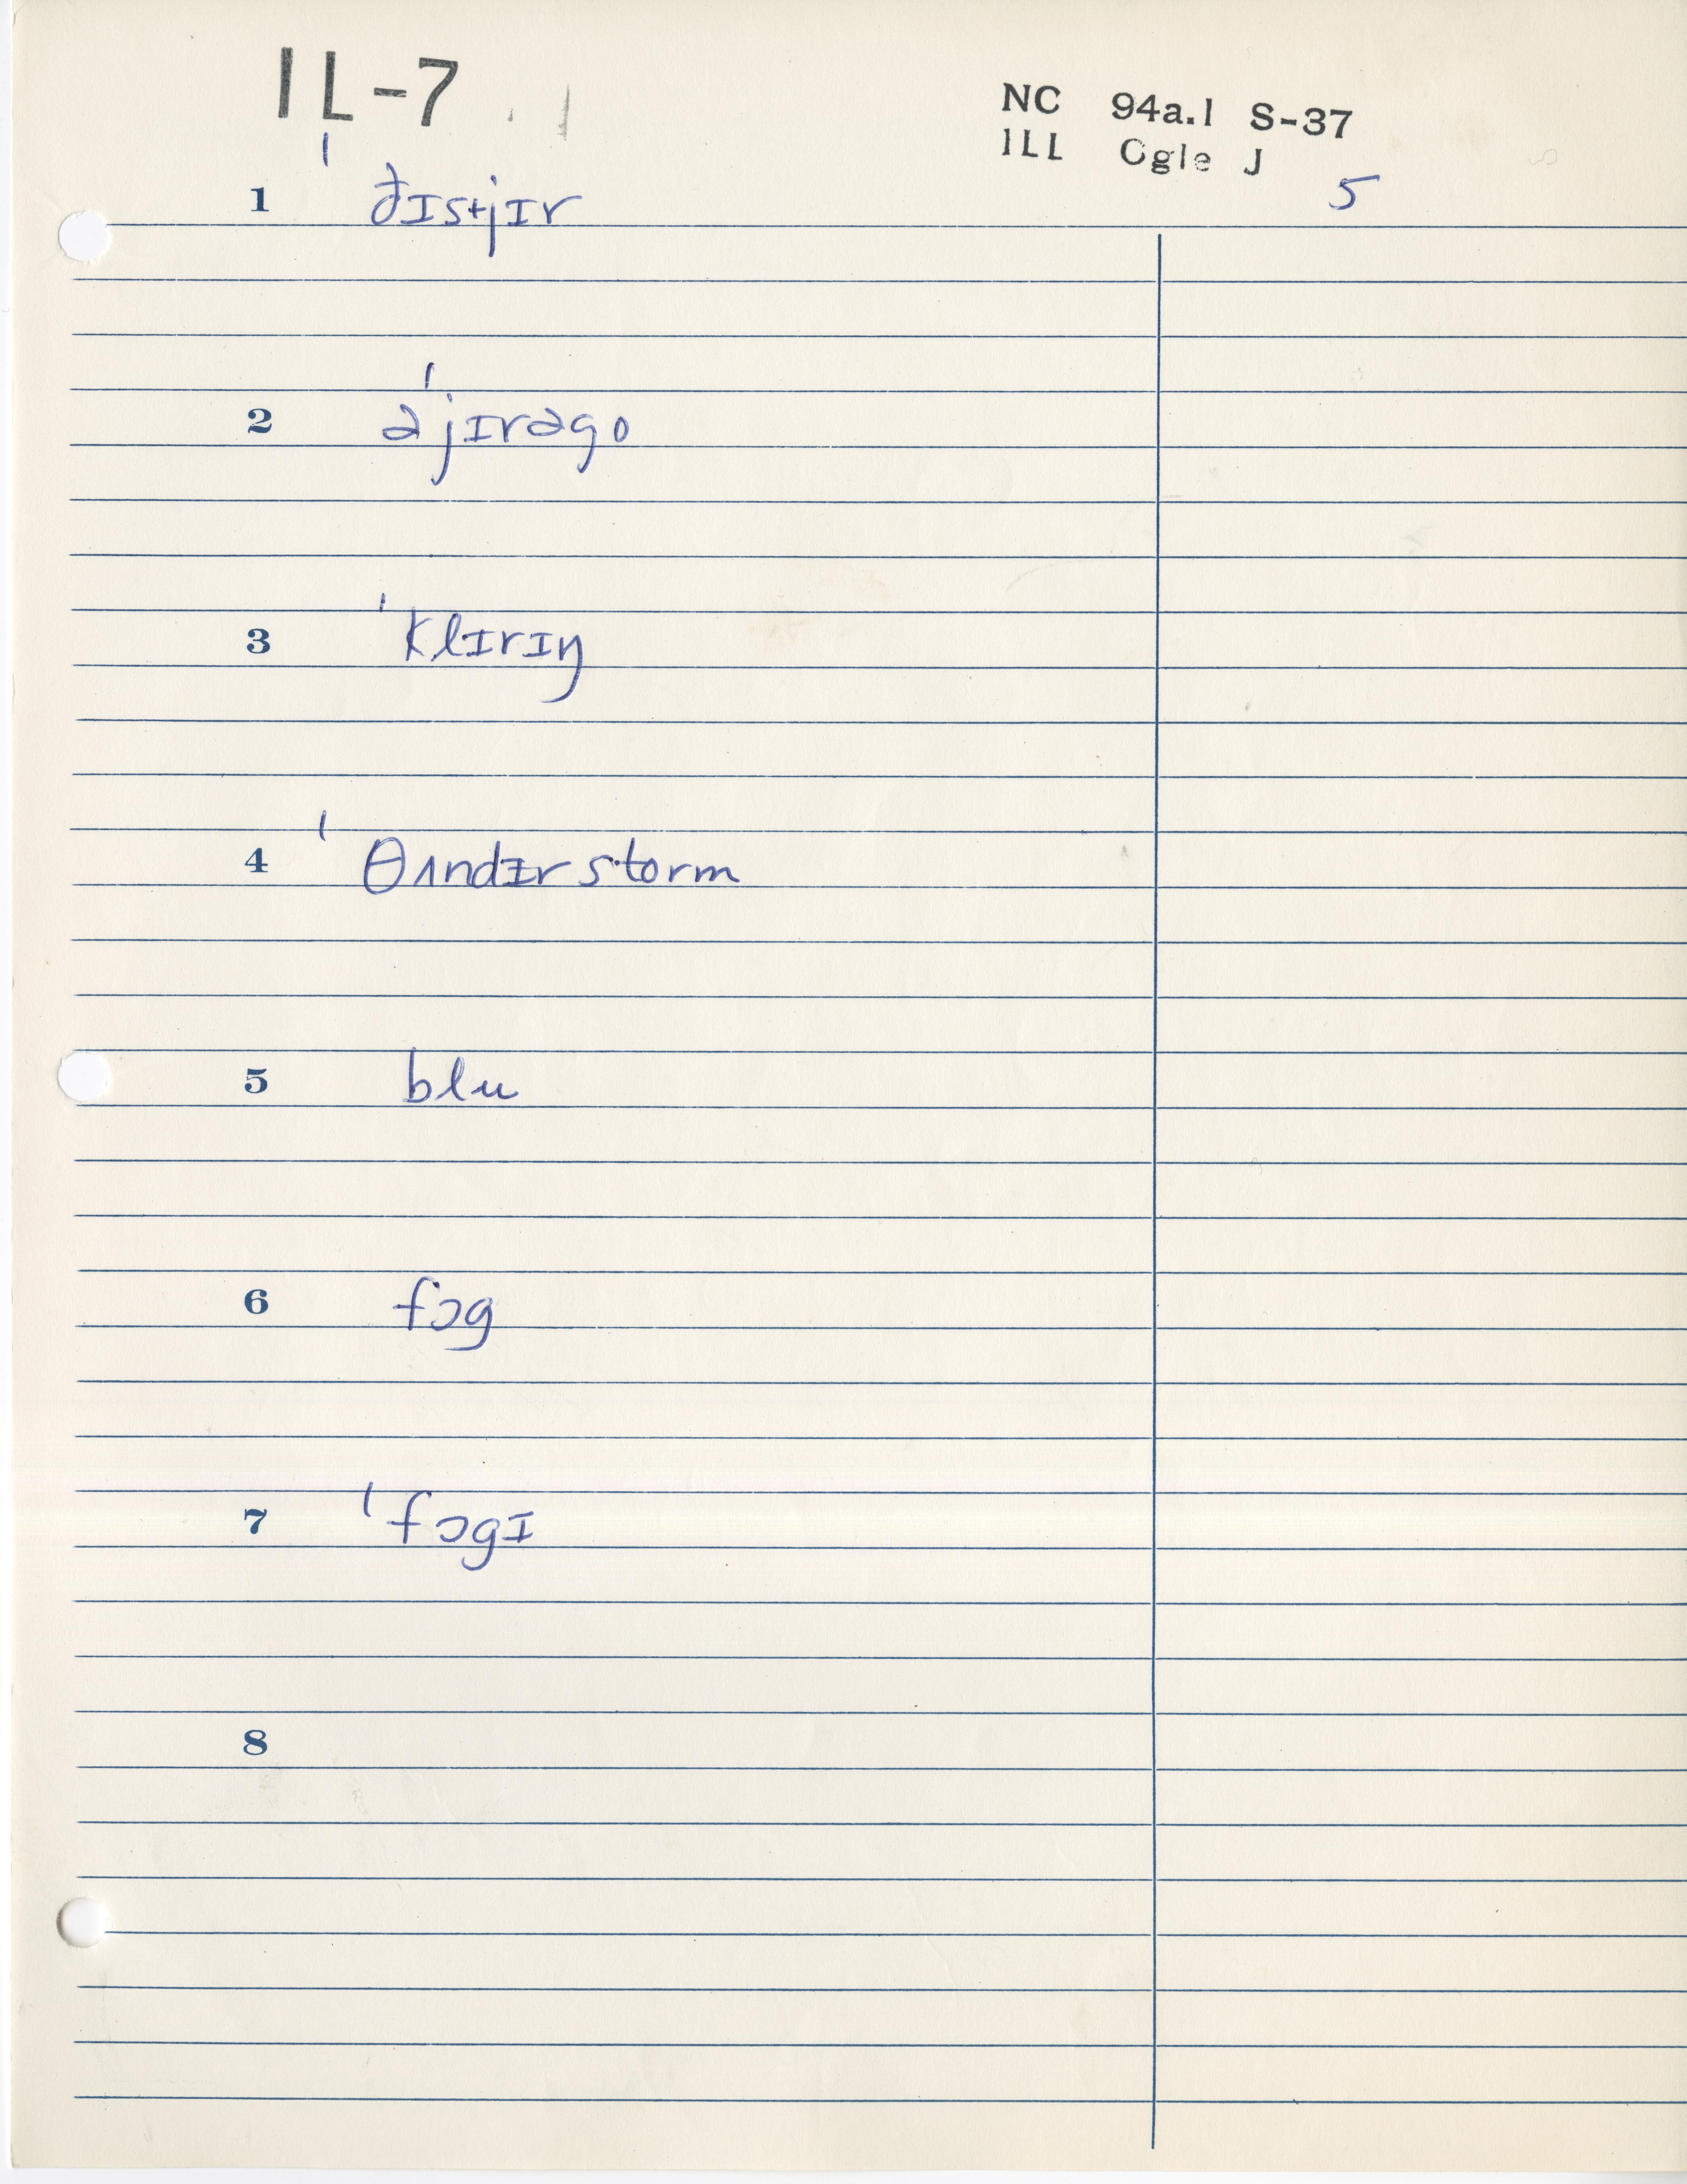 IL-7
NC 94a.1 S-37
ILL Ogle J
5
1 ˈðɪstjɪr
2 əˈjɪrəgo
3 ˈklɪrɪŋ
4 ˈθʌndɪrstorm
5 blu
6 fɔg
7 ˈfɔgɪ
8